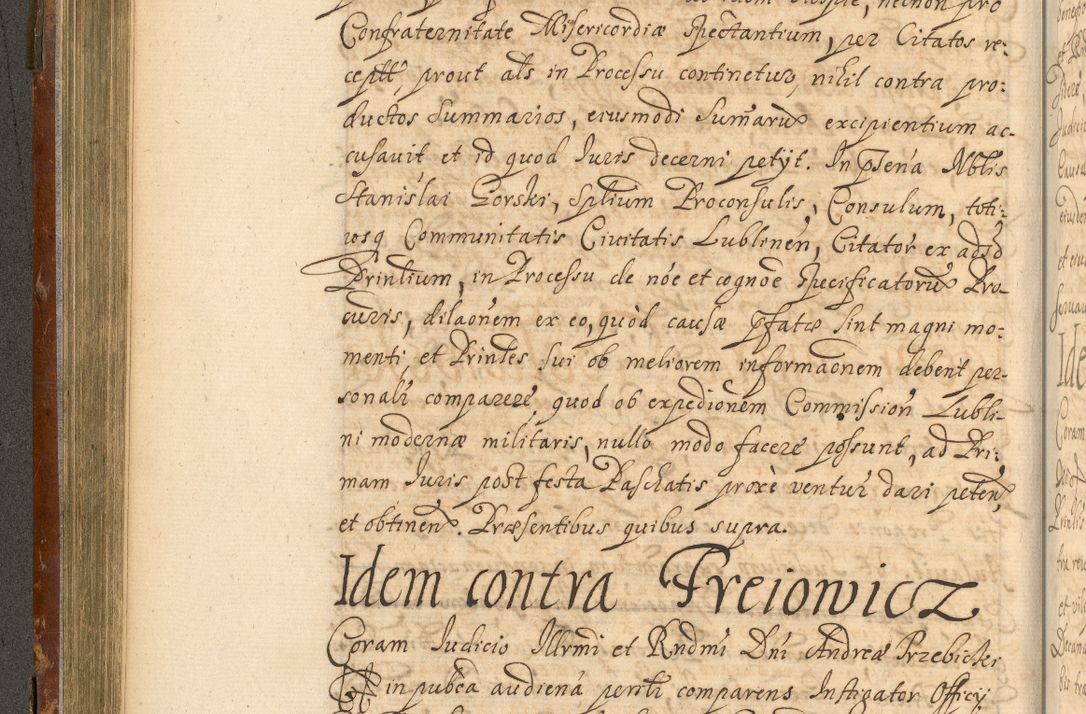 Confraternitate Misericordiæ spectantium, per Citatos re:
ceptt, prout als in Processu continetur, nihil contra pro:
ductos Summarios, eiusmodi Sum̃aru excipientium ac-
cusavit et id quod Iuris decerni petyt. In p̃sena Nblis
Stanislai Gorski, Splium Proconsulis, Consulum, toti-
usq Communitatis Civitatis Lublinen, Citator ex adso
Prinlium, in Processu de nõe et cognõe specificatoru Pro-
curis, dilaonem ex eo, quòd causæ p̃fatæ sint magni mo-
menti, et Prinles sui ob meliorem informaonem debent per-
sonalr comparere, quod ob expedionem Commission Lubli-
ni modernæ militaris, nullo modo facere possunt, ad Pri:
mam Iuris post festa Paschatis proxè ventur dari peten,
et obtinen. Præsentibus quibus supra.
Idem contra Freiowicz
Coram Iudicio Illrmi et Rndmi Dni Andreæ Trzebicki
in pubca audiena perili comparens Instigator Officy